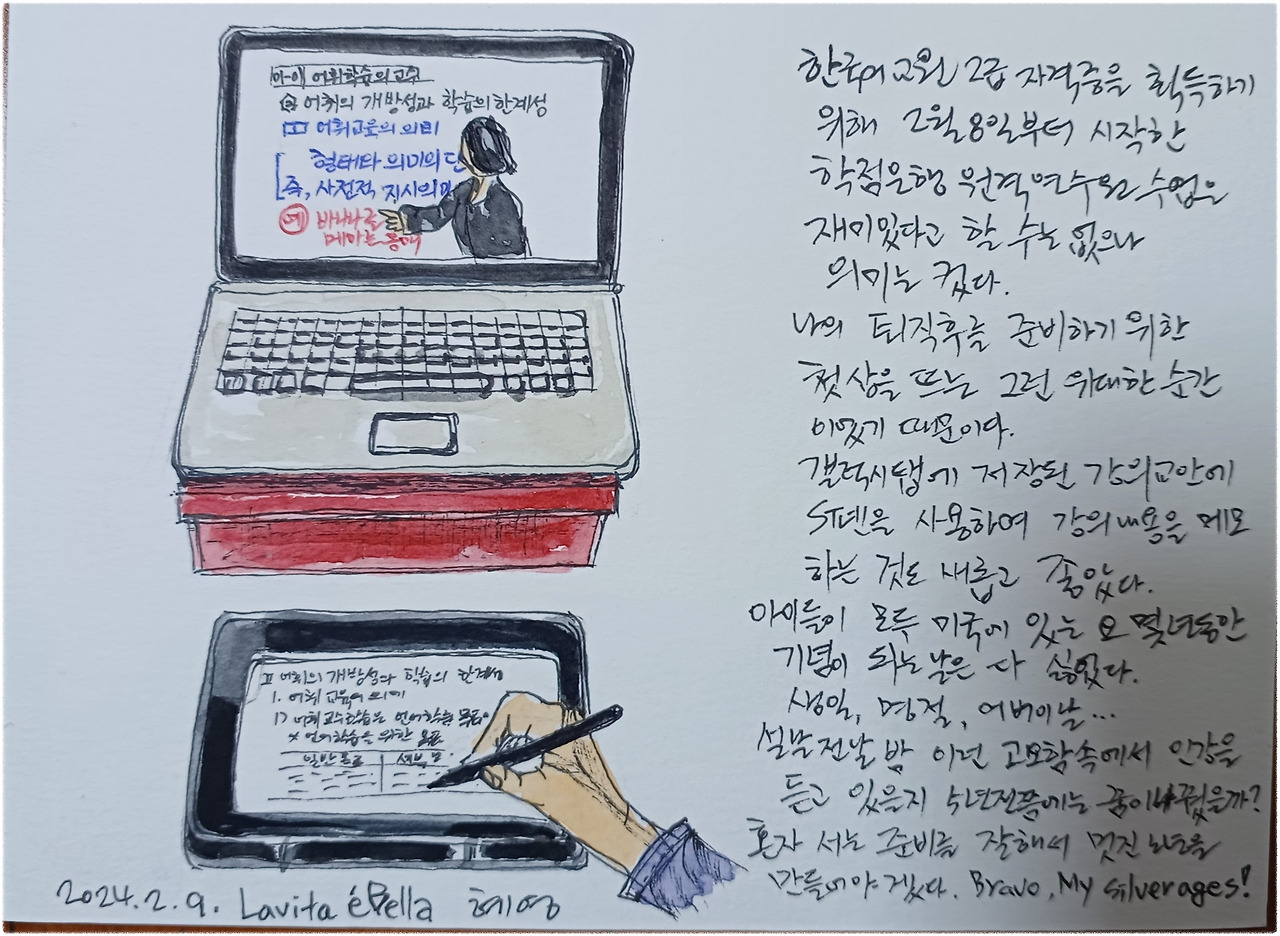 아이 어휘학습의 교수
어휘의 개방성과 학습의 한계성
어휘교육의 의미
형태타 의미의 단
즉, 사전적 지시의미
예 바나나로
메아는 통해
Ⅱ 어휘의 개방성과 학습의 한계성
1. 어휘 교육의 의미
1) 어휘 교수학습은 언어학습 목표
※ 언어학습을 위한 목표
일반목표 세부 목
2024.2.9. Lavita é Bella 혜영
한국어교원 2급 자격증을 획득하기
위해 2월8일부터 시작한
학점은행 원격연수원 수업은
재미있다고 할 수는 없으나
의미는 컸다.
나의 퇴직후를 준비하기 위한
첫 삽을 뜨는 그런 위대한 순간
이었기 때문이다.
갤럭시탭에 저장된 강의교안에
S펜을 사용하여 강의내용을 메모
하는 것도 새롭고 좋았다.
아이들이 모두 미국에 있는 요 몇년동안
기념이 되는 날은 다 싫었다.
생일, 명절, 어버이날...
설날전날 밤 이런 고요함속에서 인강을
듣고 있을지 수년전쯤에는 꿈이나 꿨을까?
혼자 서는 준비를 잘해서 멋진 노년을
만들어야겠다. Bravo, My silverages!